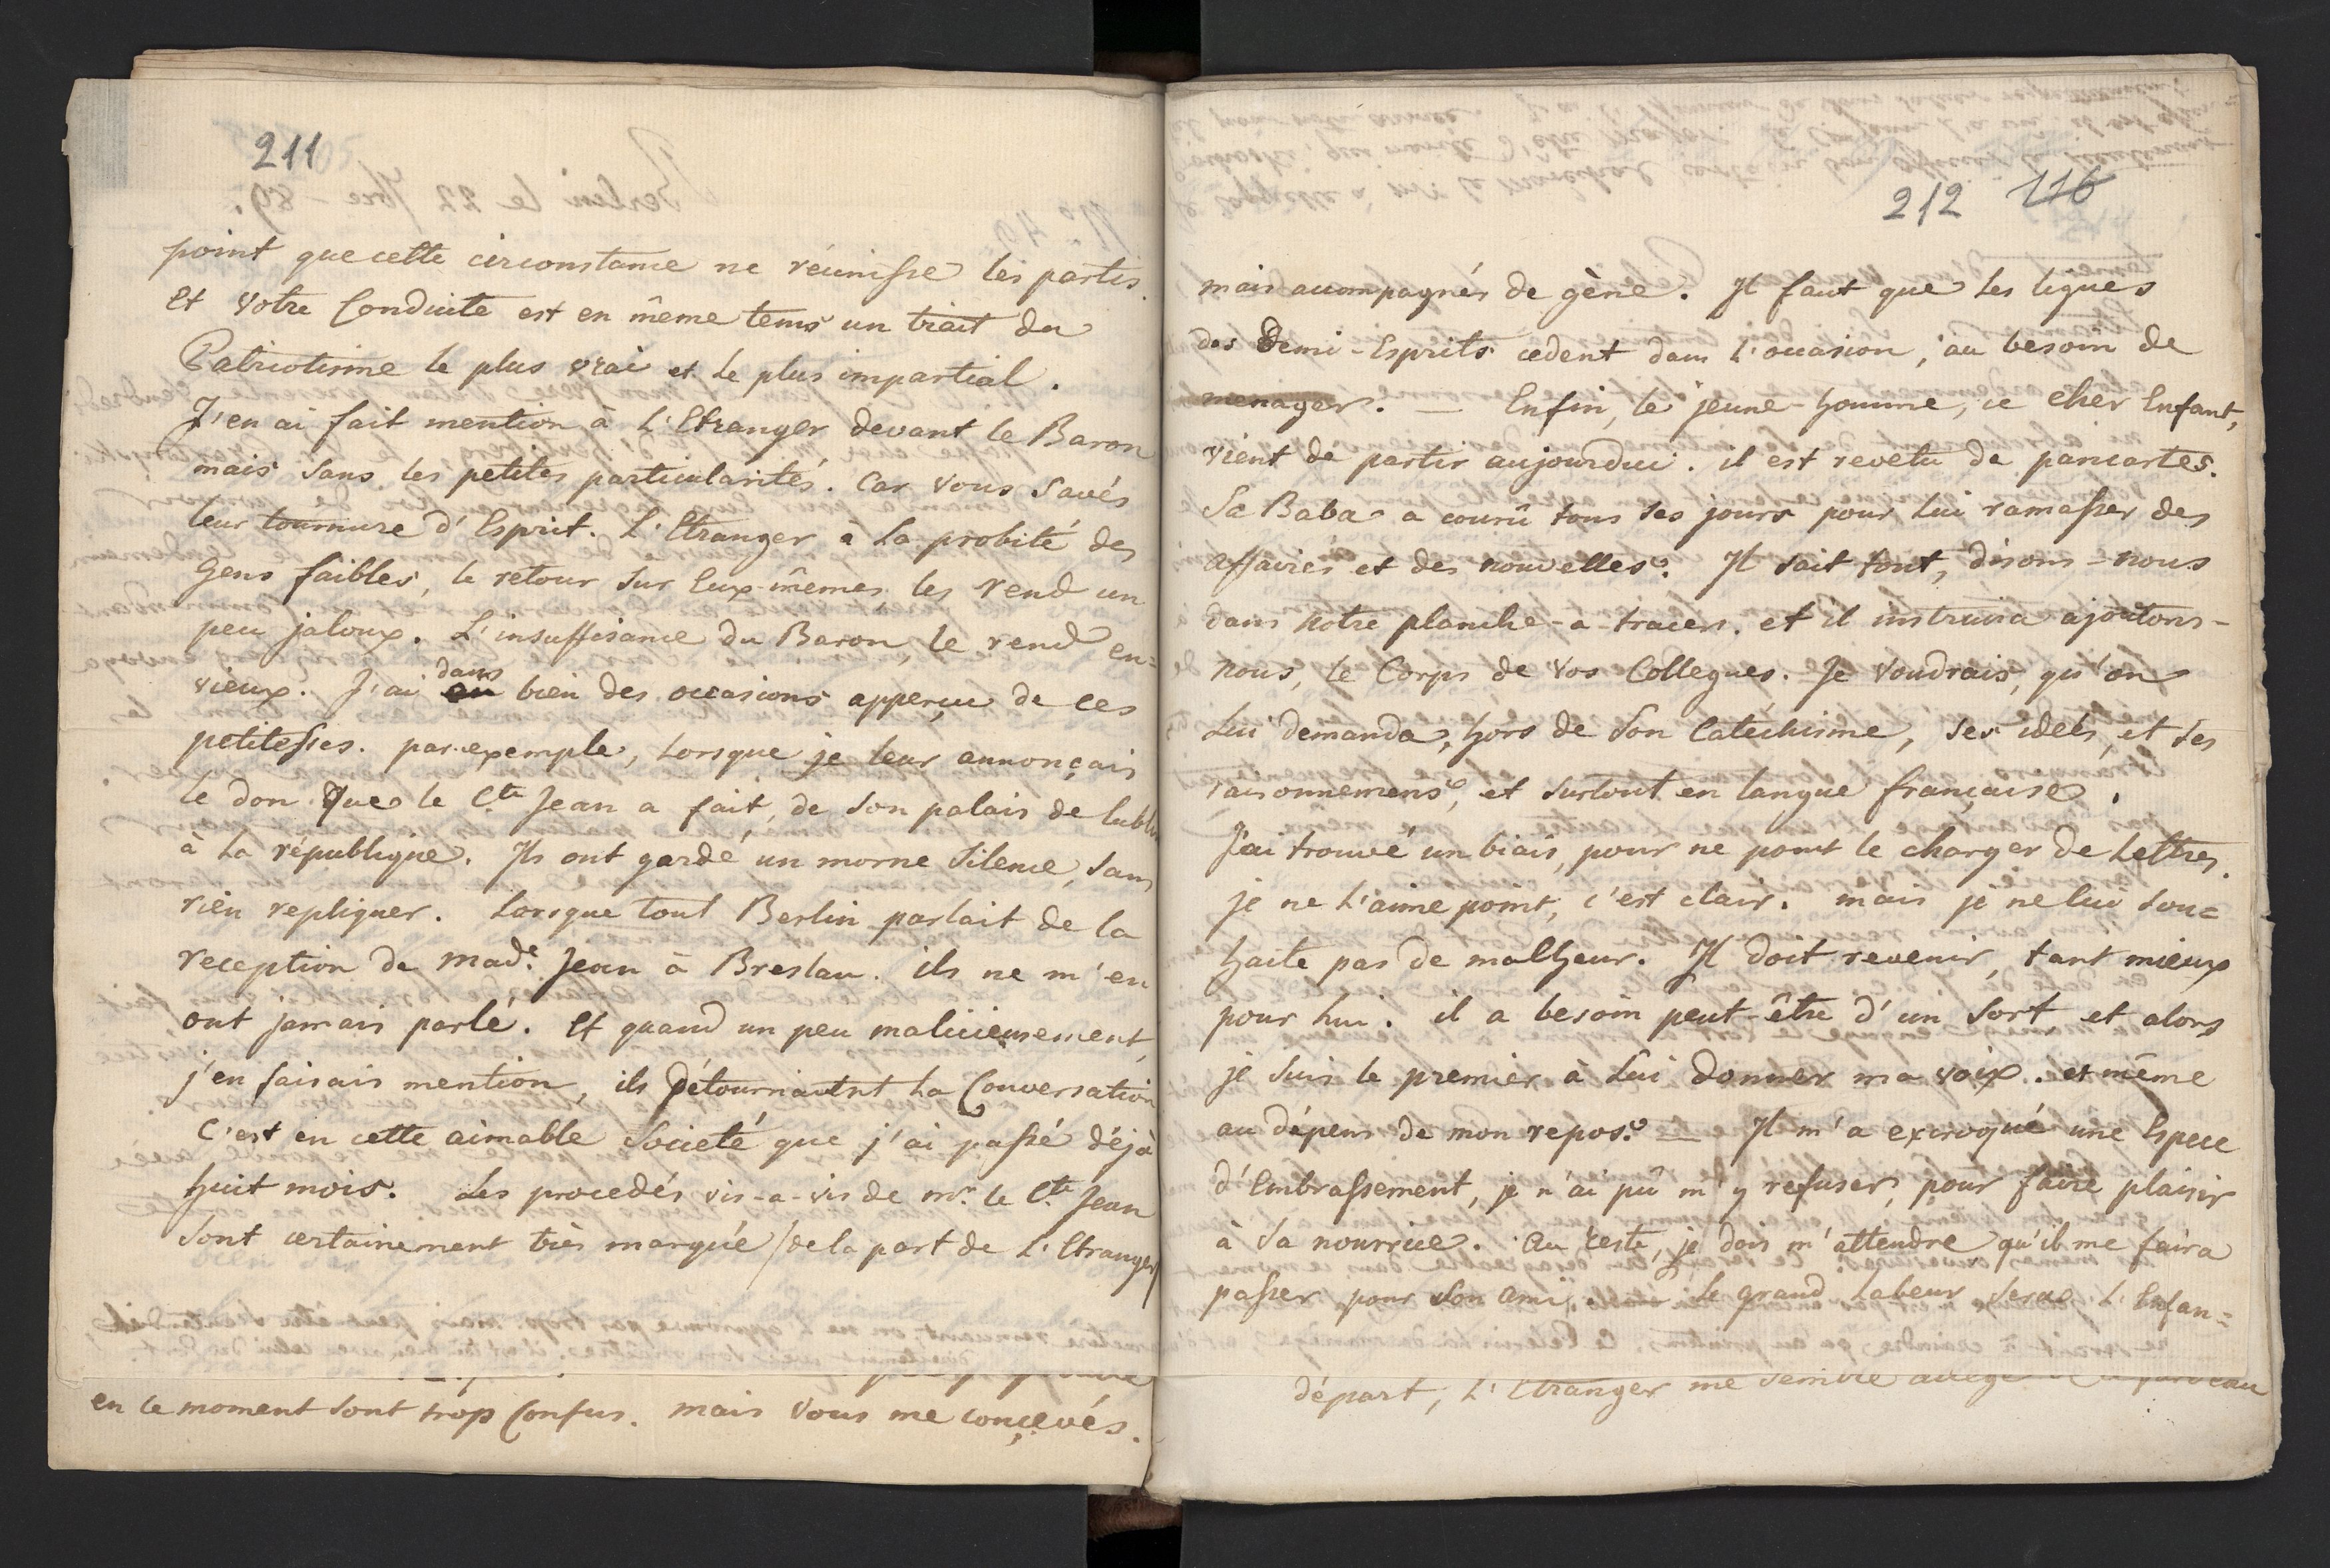 211
point que cette circonstance ne réunisse les partis.
Et votre Conduite est en même tems un trait du
Patriotisme le plus vrai et le plus impartial.
J'en ai fait mention à L'Etranger devant le Baron
mais sans les petites particularités. Car vous savés
leur tournure d'Esprit. L'Etranger a la probité des
Gens faibles, le retour sur Eux-mêmes les rend un
peu jaloux. L'insuffisance du Baron, le rend en=
dans
vieux. J'ai en bien des occasions apperçu de ces
petitesses. par exemple, Lorsque je leur annonçais
le don que le Cte Jean a fait, de son palais de lublin
à la république. Ils ont gardé un morne Silence, sans
rien repliquer. Lorsque tout Berlin parlait de la
reception de Made. Jean à Breslau. ils ne m'en
ont jamais parlé. Et quand un peu malicieusement,
j'en faisais mention, ils détournaient la Conversation
C'est en cette aimable Societé que j'ai passé déjà
huit mois. Les procedés vis-a-vis de mr. le Cte Jean
sont certainement très marqué /de la part de L'Etranger/
en ce moment sont trop Confus. mais vous me conçevés.
212 116
mais accompagnés de gène. Il faut que les ligues
des Demi-Esprits cedent dans l'occasion, au besoin de
menager. — Enfin, le jeune-homme, ce cher Enfant,
vient de partir aujourdui. il est revetu de pancartes.
Sa Baba a courû tous ses jours pour lui ramasser des
affaires et des nouvelles. Il sait tout, disons-nous
dans notre planche-a-tracer. et il instruira ajoutons-
nous, le Corps de vos Collegues. Je voudrais, qu'on
Lui demanda, hors de son Catéchisme, ses idées, et ses
raisonnemens, et surtout en langue française.
J'ai trouvé un biais, pour ne point le charger de Lettres.
je ne L'aime point, c'est clair. mais je ne lui sou=
haite pas de malheur. Il doit revenir, tant mieux
pour lui. il a besoin peut-être d'un sort, et alors
je suis le premier à lui donner ma voix. et même
au dépens de mon repos. — Il m'a excroqué une Espece
d'Embrassement, je n'ai pû m'y refuser, pour faire plaisir
à Sa nourrice. Au reste, je dois m'attendre qu'il me faira
passer pour son ami, le grand Labeur sera L'Enfan=
départ, L'Etranger me semble